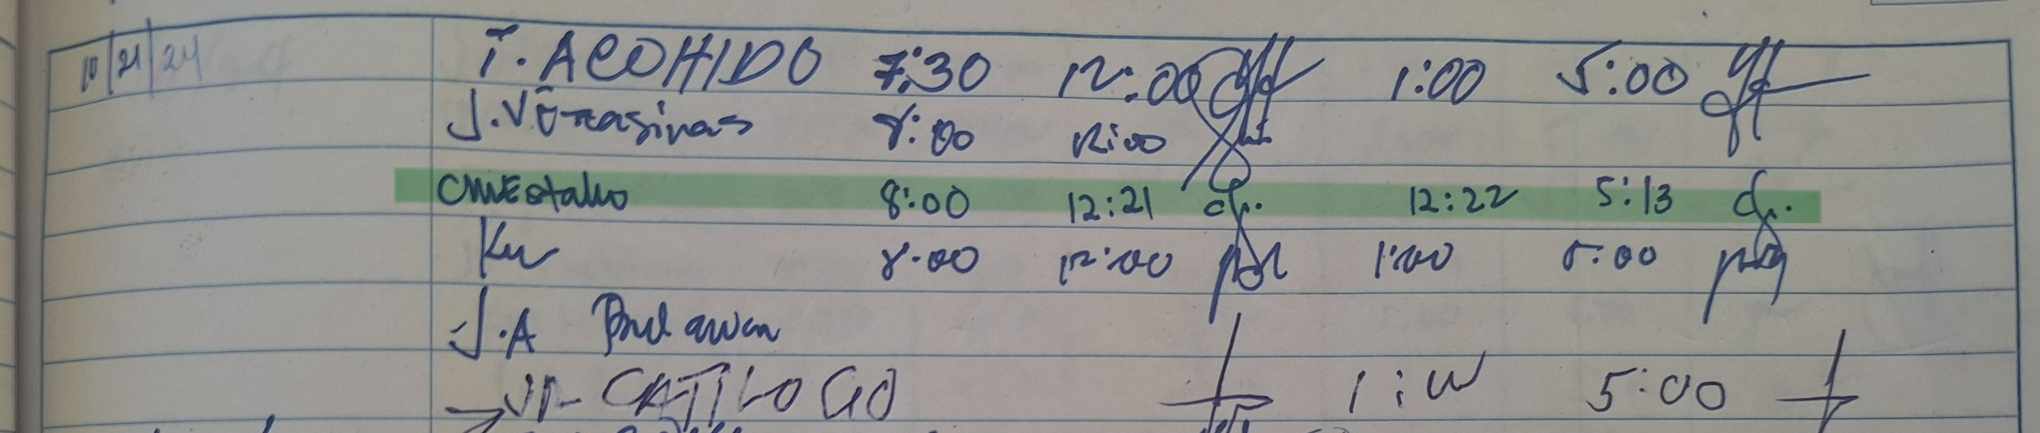 10/21/24 T. ACOHIDO 7:30 12:00 1:00 5:00
J. Verasinas 8:00 12:00
CMEstallo 8:00 12:21 12:22 5:13
8:00 12:00 1:00 5:00
J.A Bulawan
CATILOGO 1:00 5:00